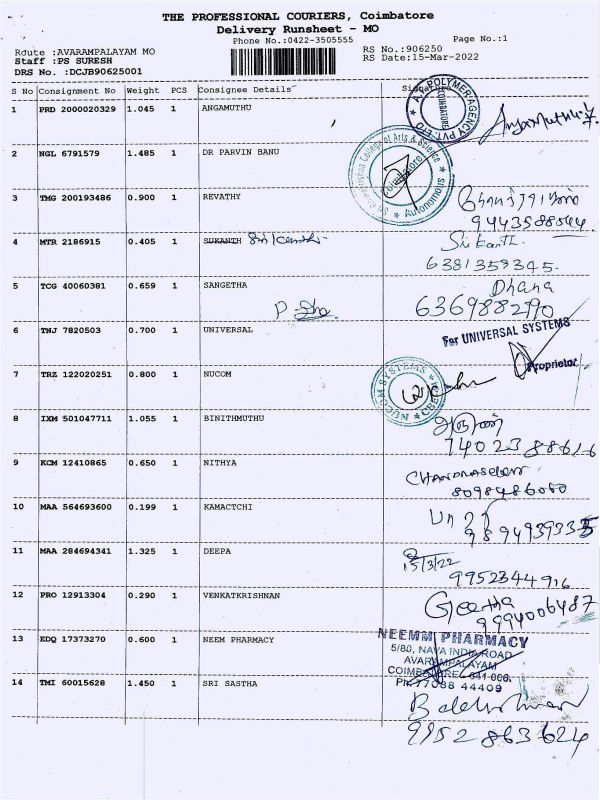 THE PROFESSIONAL COURIERS, Coimbatore
Delivery Runsheet - MO
Phone No.:0422-3505555
Page No.:1
Route :AVARAMPALAYAM MO
RS No.:906250
Staff :PS SURESH
RS Date:15-Mar-2022
DRS No. :DCJB90625001
S No Consignment No Weight PCS Consignee Details
1 PRD 2000020329 1.045 1 ANGAMUTHU
2 NGL 6791579 1.485 1 DR PARVIN BANU
3 TMG 200193486 0.900 1 REVATHY
9443588544
4 MTR 2186915 0.405 1 SUKANTH Srikanth
6381359345
5 TCG 40060381 0.659 1 SANGETHA
Dhana
6369882790
6 TNJ 7820503 0.700 1 UNIVERSAL
For UNIVERSAL SYSTEMS
Proprietor
7 TRZ 122020251 0.800 1 NUCOM
NUCOM SYSTEMS CBE
8 IXM 501047711 1.055 1 BINITHMUTHU
அருண்
9 KCM 12410865 0.650 1 NITHYA
8098486080
10 MAA 564693600 0.199 1 KAMACTCHI
11 MAA 284694341 1.325 1 DEEPA
15/3/22
9952344916
12 PRO 12913304 0.290 1 VENKATKRISHNAN
Geetha
9994006487
13 EDQ 17373270 0.600 1 NEEM PHARMACY
NEEMM PHARMACY
5/80, NAVA INDIA ROAD
AVARAMPALAYAM
COIMBATORE - 641 006.
PH: 77088 44409
14 TMI 60015628 1.450 1 SRI SASTHA
9952863624